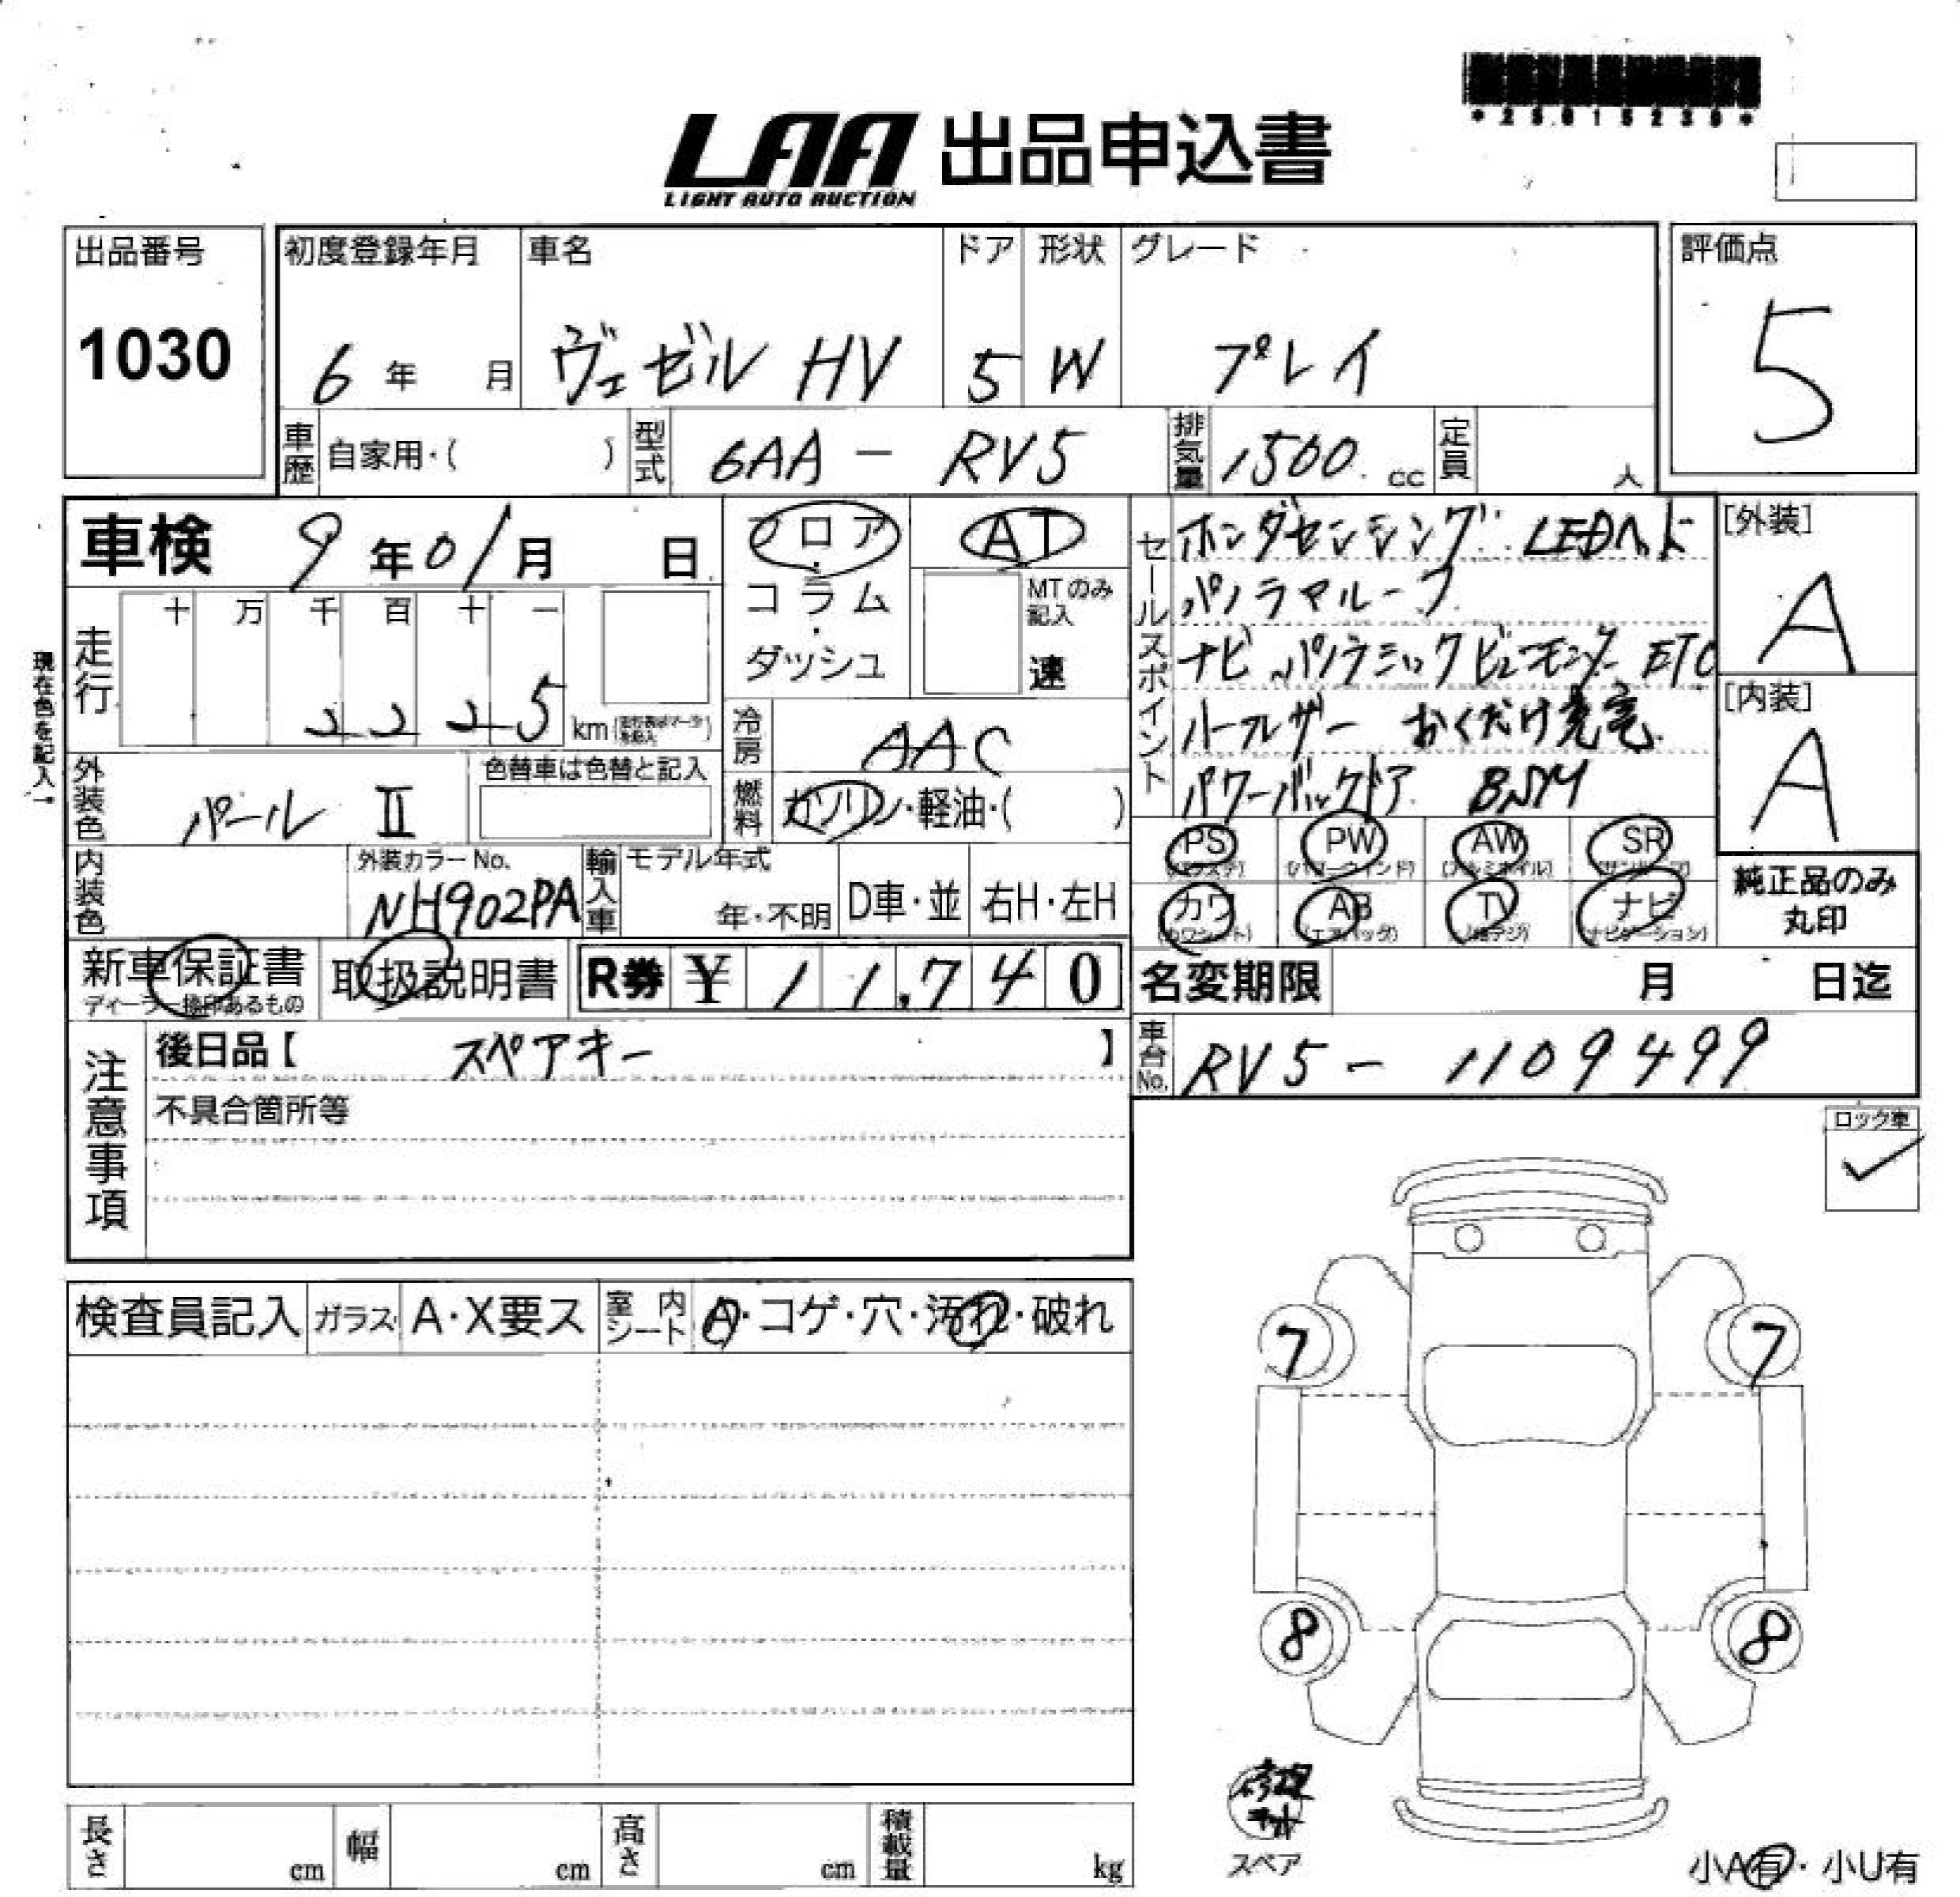 *25015230*
LAA 出品申込書
LIGHT AUTO AUCTION
出品番号
1030
初度登録年月
6年 月
車名
ヴェゼル HV
ドア
5
形状
W
グレード
プレイ
評価点
5
車歴 自家用・( )
型式 6AA - RV5
排気量 1500 cc
定員 人
車検 9年01月 日
フロア
コラム
ダッシュ
AT
MTのみ記入
速
セールスポイント
ホンダセンシング LEDヘッド
パノラマルーフ
ナビ パノラミックビューモニター ETC
ハーフレザー おくだけ充電
パワーバックドア BSM
[外装]
A
[内装]
A
現在色を記入→
走行
十 万 千 百 十 一
2 2 2 5 km
冷房 AAC
外装色 パール II
色替車は色替と記入
燃料 ガソリン・軽油・( )
内装色
外装カラーNo.
NH902PA
輸入車
モデル年式
年・不明
D車・並
右H・左H
PS (パワステ)
PW (パワーウインド)
AW (アルミホイル)
SR (サンルーフ)
カワ (カワシート)
AB (エアバッグ)
TV (地デジ)
ナビ (ナビゲーション)
純正品のみ
丸印
新車保証書
ディーラー捺印あるもの
取扱説明書
R券 ¥ 11,740
名変期限 月 日迄
注意事項
後日品【 スペアキー 】
不具合箇所等
車台No. RV5 - 1109499
ロック車
✓
検査員記入
ガラス A・X要ス
室内シート A・コゲ・穴・汚れ・破れ
7 7
8 8
修理キット
スペア
小A有・小U有
長さ cm
幅 cm
高さ cm
積載量 kg